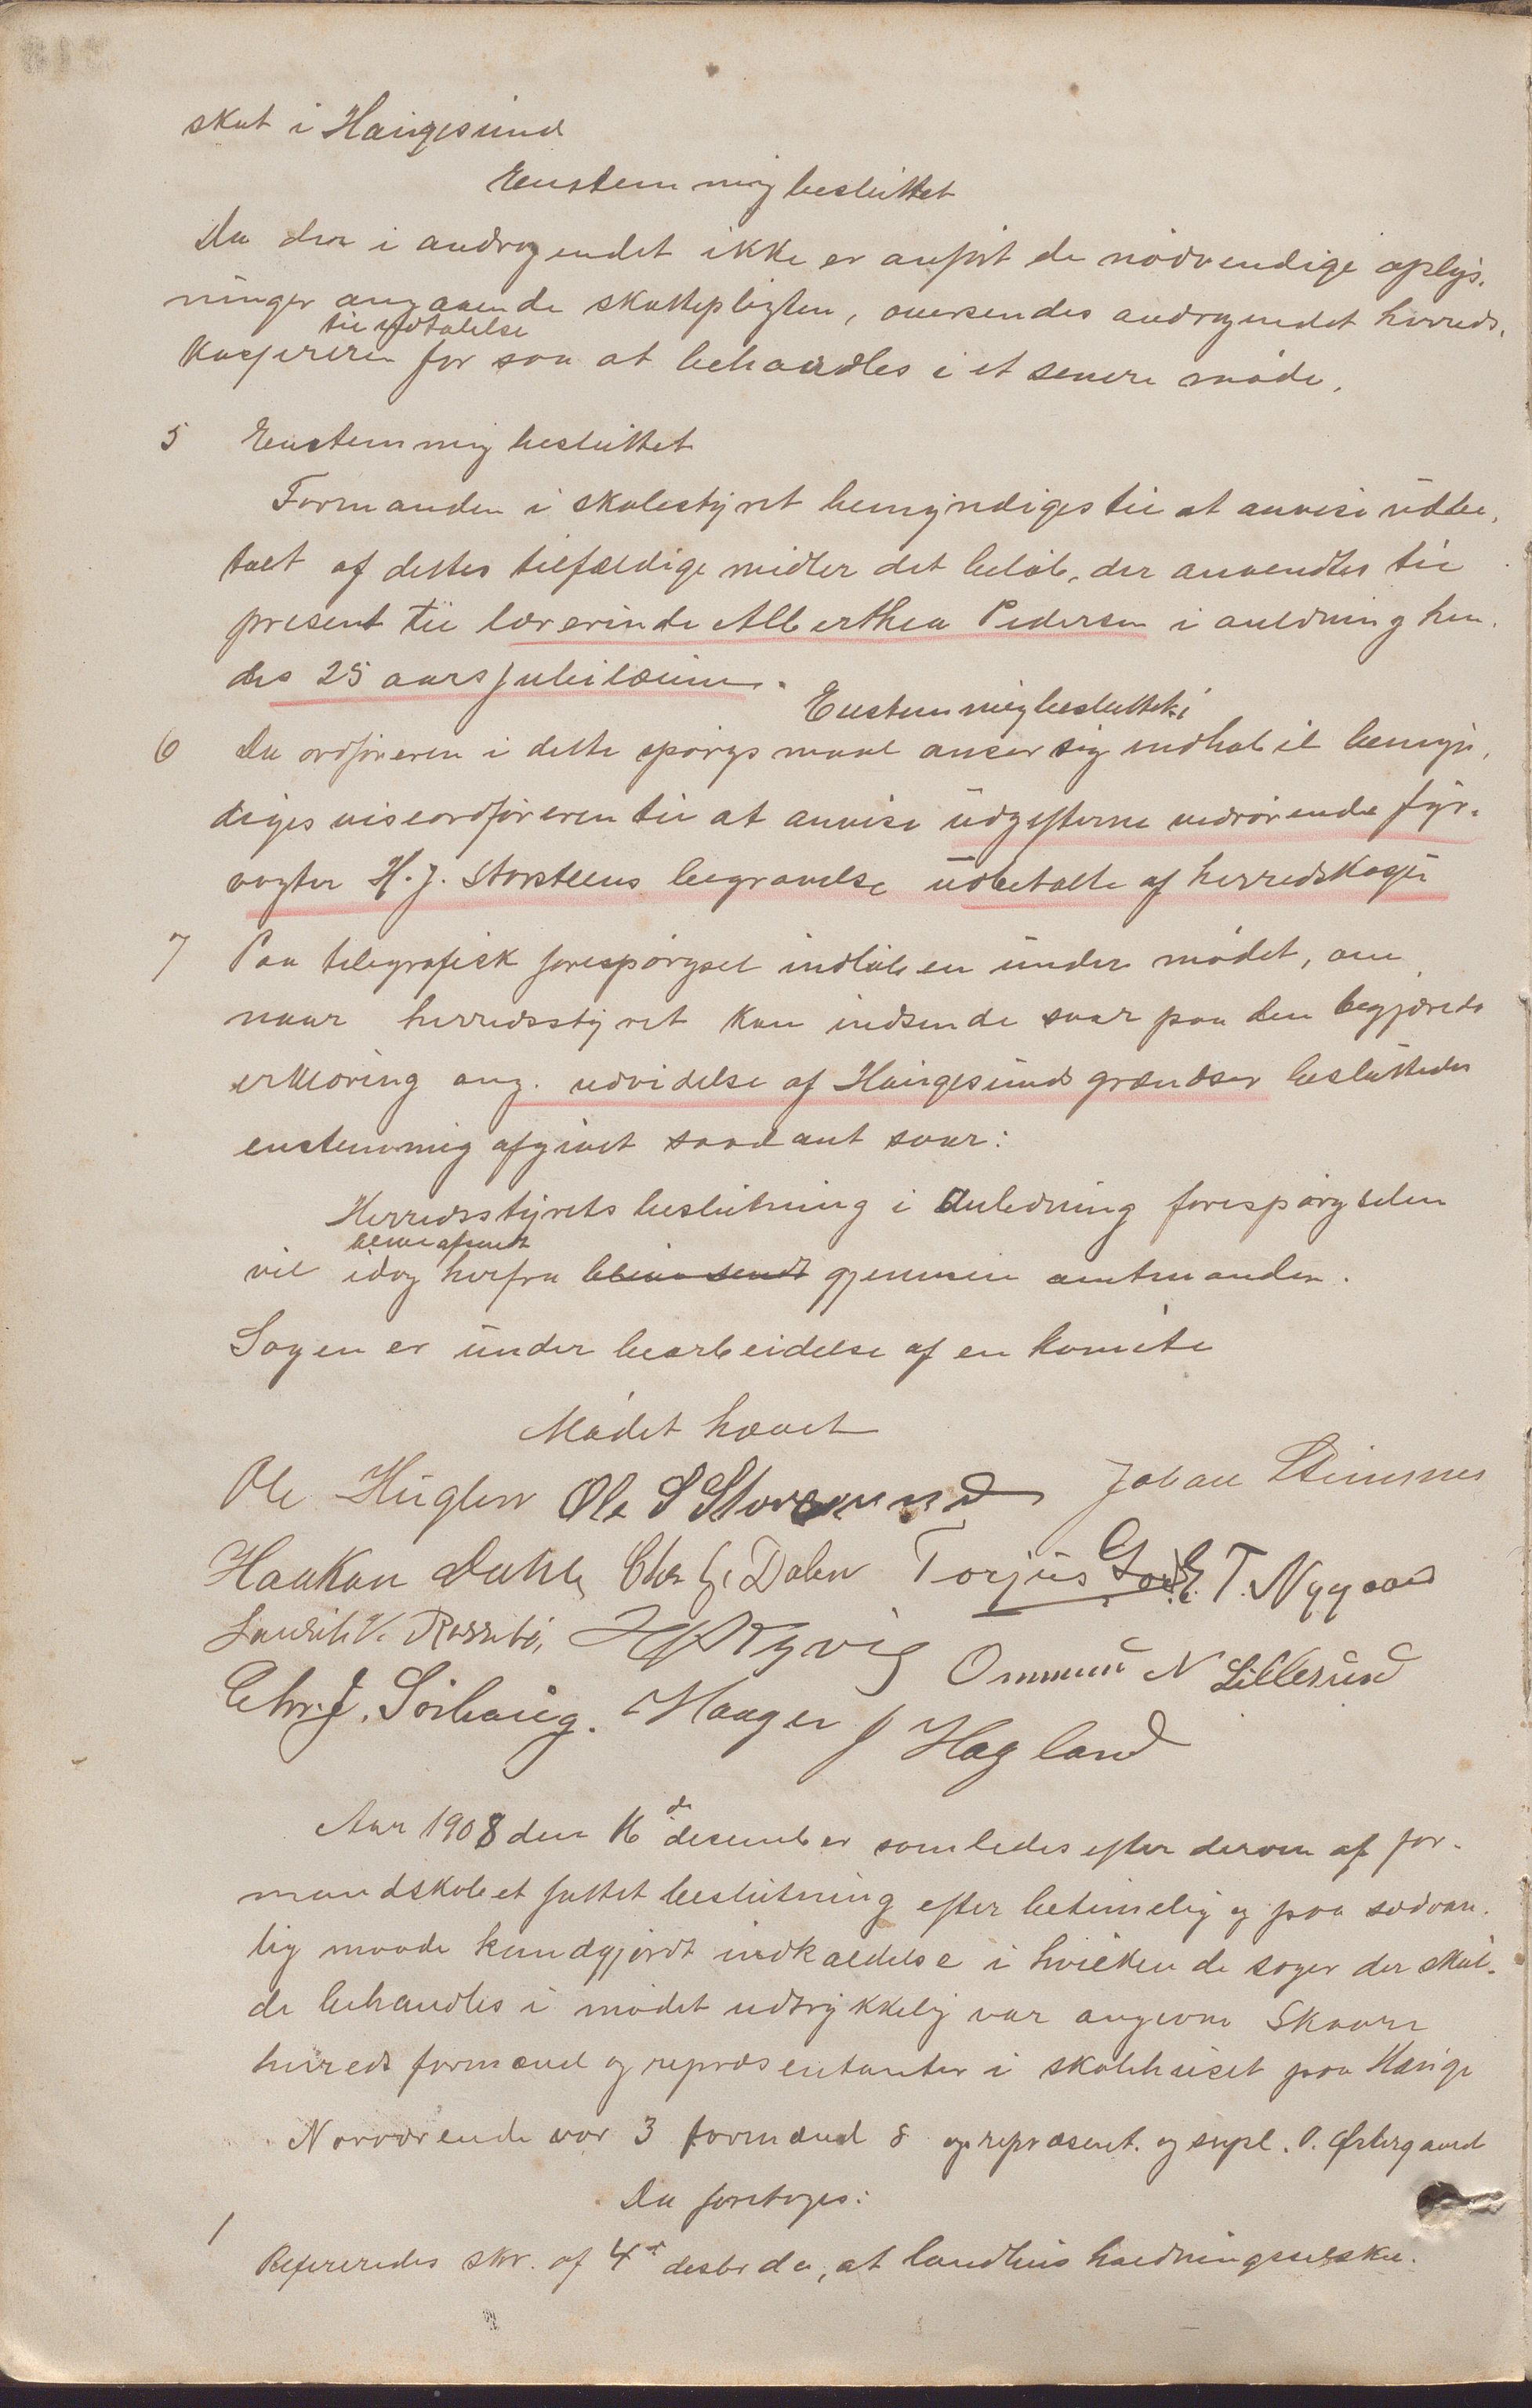 skat i Haugesund
Enstemmig besluttet
Da der i andragendet ikke er anført de nødvendige oplys-
ninger angaaende skattepligten, oversendes andragendet herreds-
til udtalelse
kassereren for saa at behandles i et senere møde.
5 Enstemmig besluttet
Formanden i skolestyret bemyndiges til at anvise udbe-
talt af dettes tilfældige midler det beløb, der anvendtes til
present til lærerinde Alberthea Pedersen i anledning hen-
des 25 aars jubilæum.
Enstemmig besluttet:
6 Da ordføreren i dette spørgsmaal anser sig indhabil bemyn-
diges viseordføreren til at anvise udgifterne vedrørende fyr-
vogter H. J. Storsteens begravelse udbetalte af herredskassen
7 Paa telegrafisk forespørgsel indløben under mødet, om
naar herredsstyret kan indsende svar paa den begjærede
erklæring ang. udvidelse af Haugesunds grændser besluttedes
enstemmig afgivet saadant svar:
Herredsstyrets beslutning i anledning forespørgselen
blive afsendt
vil idag herfra blive sendt gjennem amtmanden.
Sagen er under bearbeidelse af en komite
Mødet hævet
Ole Huglen Ole S Storesund Johan Stensnes
Haakon Dahle Chr. G. Dalen Torjus Gard E. T. Nygaard
Lauritz V. Rossebø, Kyvig Ommund N Lillesund
Chr. J. Sørhaug. Maager J Hagland
Aar 1908 den 16de desember samledes efter derom af for-
mandskabet fattet beslutning efter betimelig og paa sedvan-
lig maade kundgjordt indkaldelse i hvilken de sager der skul-
de behandles i mødet udtrykkelig var angivne Skaare
herreds formænd og repræsentanter i skolehuset paa Hauge
Nærværende var 3 formænd 8 repræsent. og supl. O. Østergaard
Da foretoges:
1 Refereredes skr. af 4de desbr da, at landhusholdningsselska-